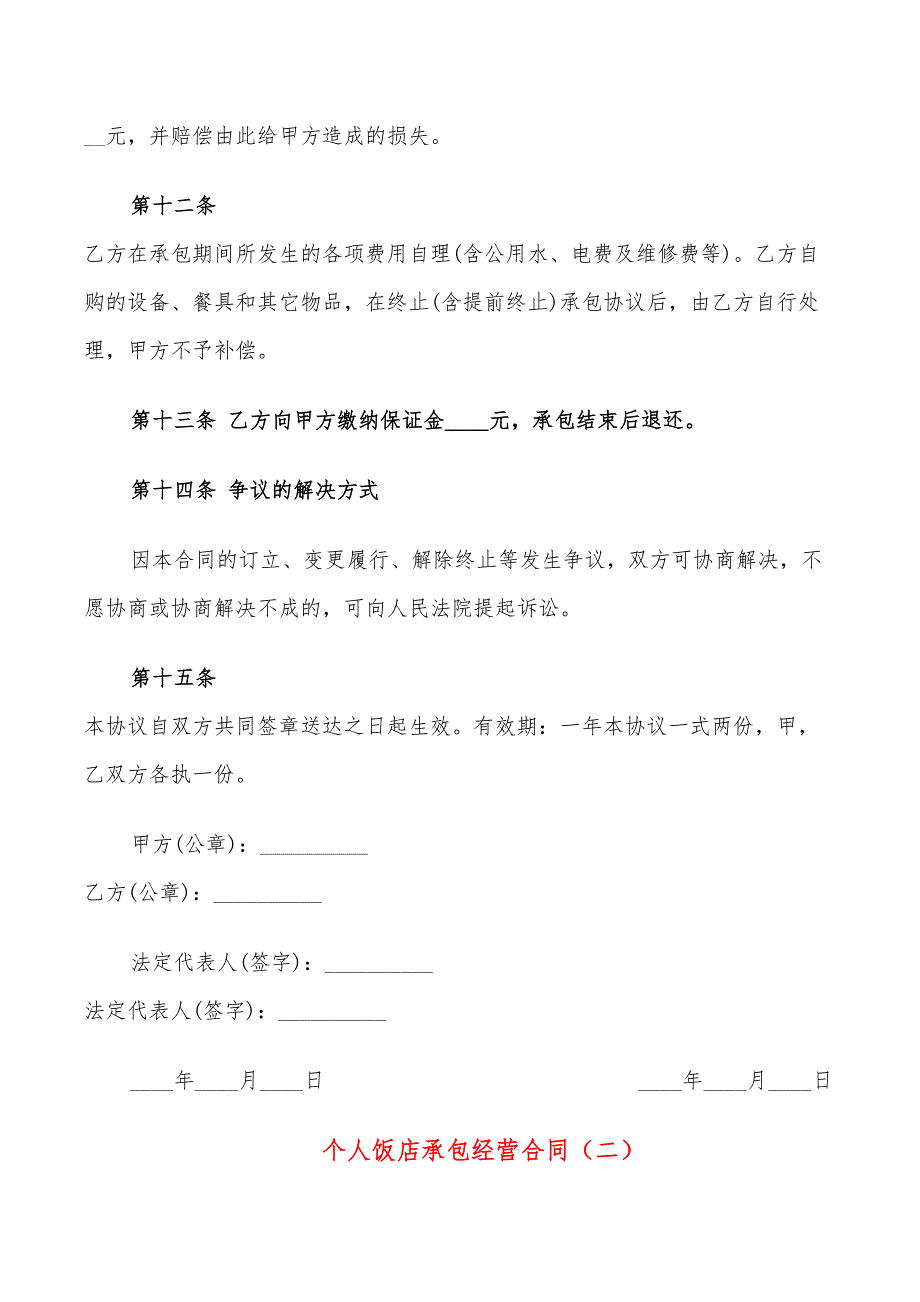 __元，并赔偿由此给甲方造成的损失。
第十二条
乙方在承包期间所发生的各项费用自理(含公用水、电费及维修费等)。乙方自
购的设备、餐具和其它物品，在终止(含提前终止)承包协议后，由乙方自行处
理，甲方不予补偿。
第十三条 乙方向甲方缴纳保证金____元，承包结束后退还。
第十四条 争议的解决方式
因本合同的订立、变更履行、解除终止等发生争议，双方可协商解决，不
愿协商或协商解决不成的，可向人民法院提起诉讼。
第十五条
本协议自双方共同签章送达之日起生效。有效期：一年本协议一式两份，甲，
乙双方各执一份。
甲方(公章)：__________
乙方(公章)：__________
法定代表人(签字)：__________
法定代表人(签字)：__________
____年____月____日 ____年____月____日
个人饭店承包经营合同（二）